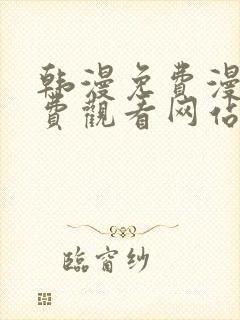 韩漫免費漫
費觀看网佔
臨窗纱